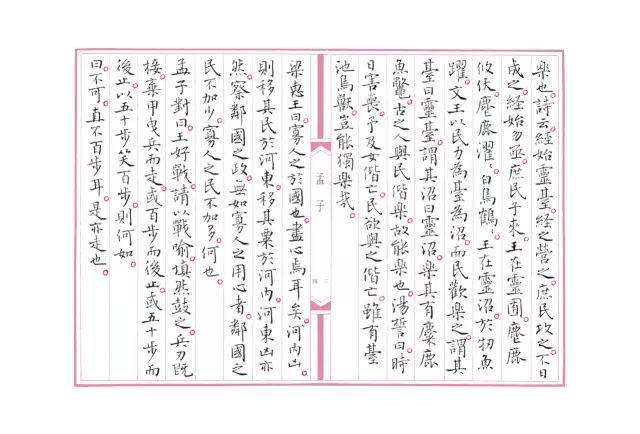 樂也。詩云。經始靈臺。經之營之。庶民攻之。不日
成之。經始勿亟。庶民子來。王在靈囿。麀鹿
攸伏。麀鹿濯〻。白鳥鶴〻。王在靈沼。於牣魚
躍。文王以民力為臺為沼。而民歡樂之。謂其
臺曰靈臺。謂其沼曰靈沼。樂其有麋鹿
魚鱉。古之人與民偕樂。故能樂也。湯誓曰。時
日害喪。予及女偕亡。民欲與之偕亡。雖有臺
池鳥獸。豈能獨樂哉。
孟子
三四
梁惠王曰。寡人之於國也。盡心焉耳矣。河內凶。
則移其民於河東。移其粟於河內。河東凶亦
然。察鄰國之政。無如寡人之用心者。鄰國之
民不加少。寡人之民不加多。何也。
孟子對曰。王好戰。請以戰喻。填然鼓之。兵刃既
接。棄甲曳兵而走。或百步而後止。或五十步而
後止。以五十步笑百步。則何如。
曰。不可。直不百步耳。是亦走也。